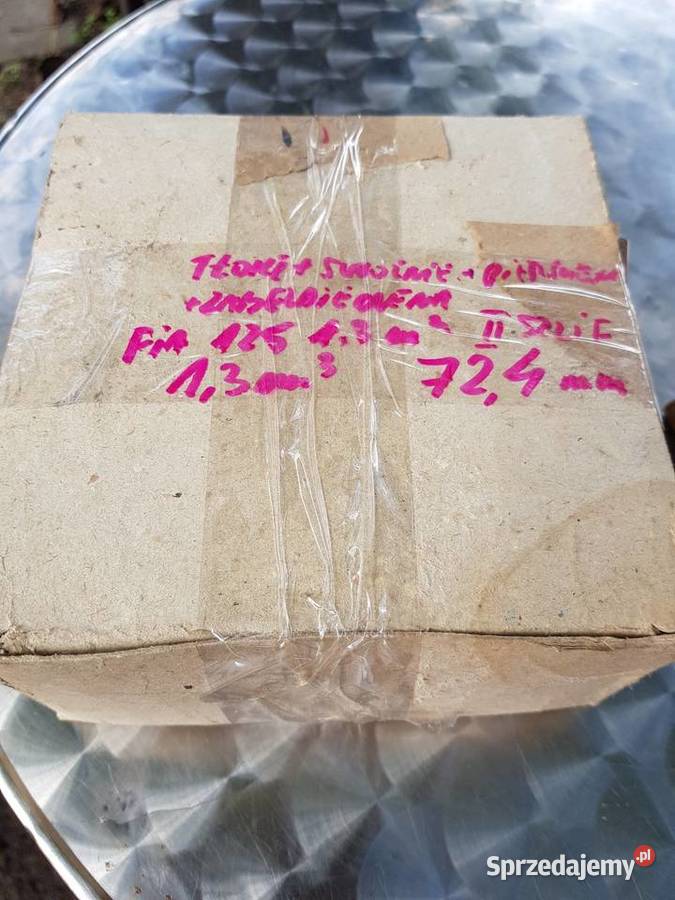 TŁOKI + SWOŻNIE +
+ ZABEZPIECZENIA
FIA 125 1.3 m³ II SZLIF
1,3 cm³ 72,4 mm
Sprzedajemy.pl